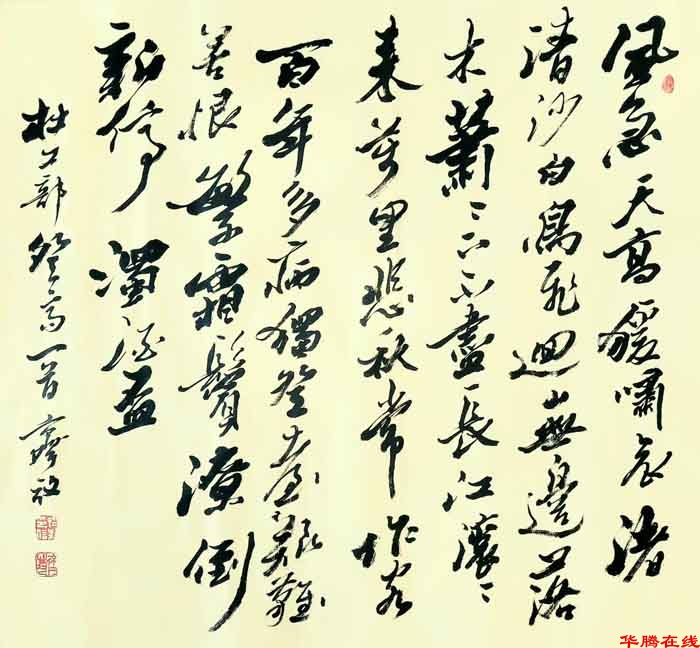 風急天高猨嘯哀渚
清沙白鳥飛迴無邊落
木蕭〻下不盡長江滾〻
来萬里悲秋常作客
百年多病獨登臺艱難
苦恨繁霜鬢潦倒
新停濁酒盃
杜工部登高一首
华腾在线